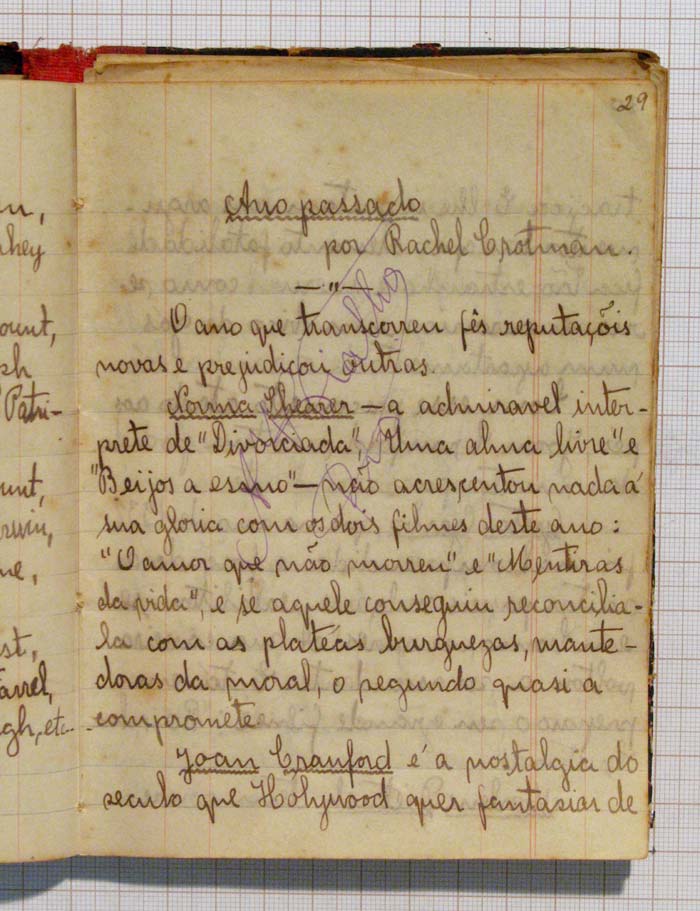 29
Ano passado
por Rachel Crotman.
— " —
O ano que transcorreu fês reputações
novas e prejudicou outras.
Norma Shearer — a admiravel inter-
prete de "Divorciada", "Uma alma livre" e
"Beijos a esmo" — não acrescentou nada á
sua gloria com os dois filmes deste ano:
"O amor que não morreu" e "Mentiras
da vida", e se aquele conseguiu reconcilia-
la com as platéas burguezas, mante-
doras da moral, o segundo quasi a
compromete.
Joan Cranford é a nostalgia do
seculo que Holywood quer fantasiar de
ount,
Patri-
unt,
st,
arrel,
gh, etc.